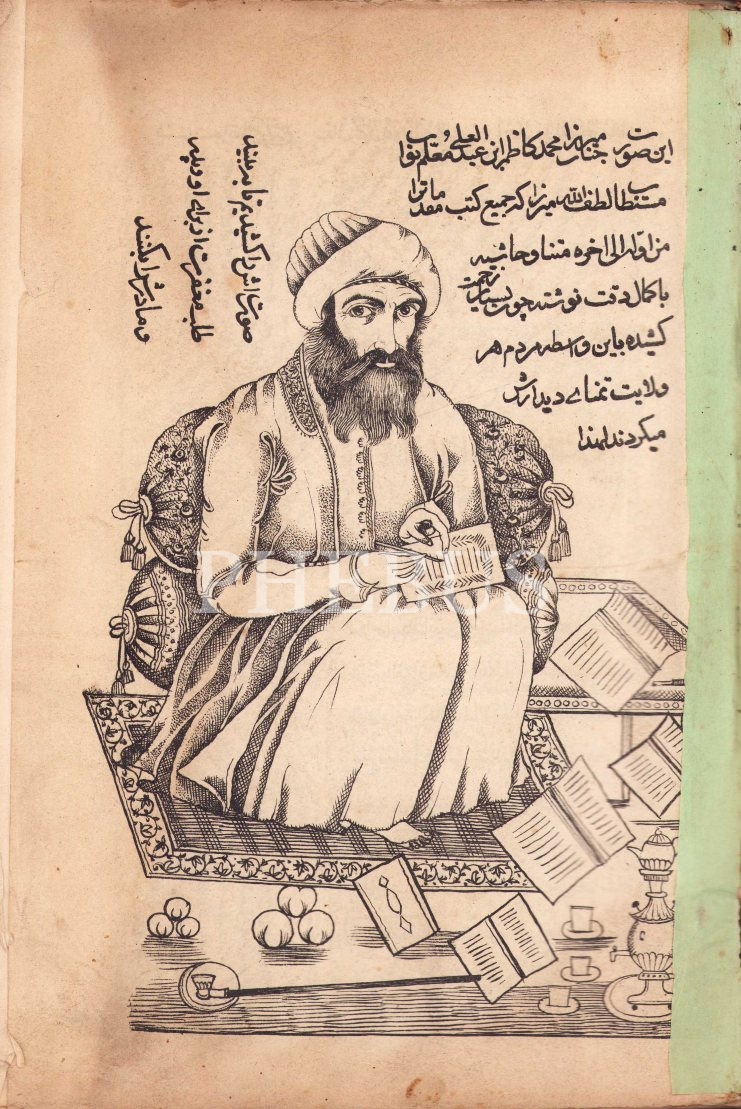 این صورت جناب میرزا محمد کاظم ابن عبد العلی معلم نواب
مستطاب لطف الله میرزا که جمیع کتب مقدماترا
من اوله الی اخره متنا و حاشیه
با کمال دقت نوشته چون بسیار زحمت
کشیده باین واسطه مردم هر
ولایت تمنای دیدارش
میکردند لهذا
صورت اش را کشیدیم تا به بینند
طلب مغفرت از برای او و پدر
و مادرش را بکنند
PHEBUS